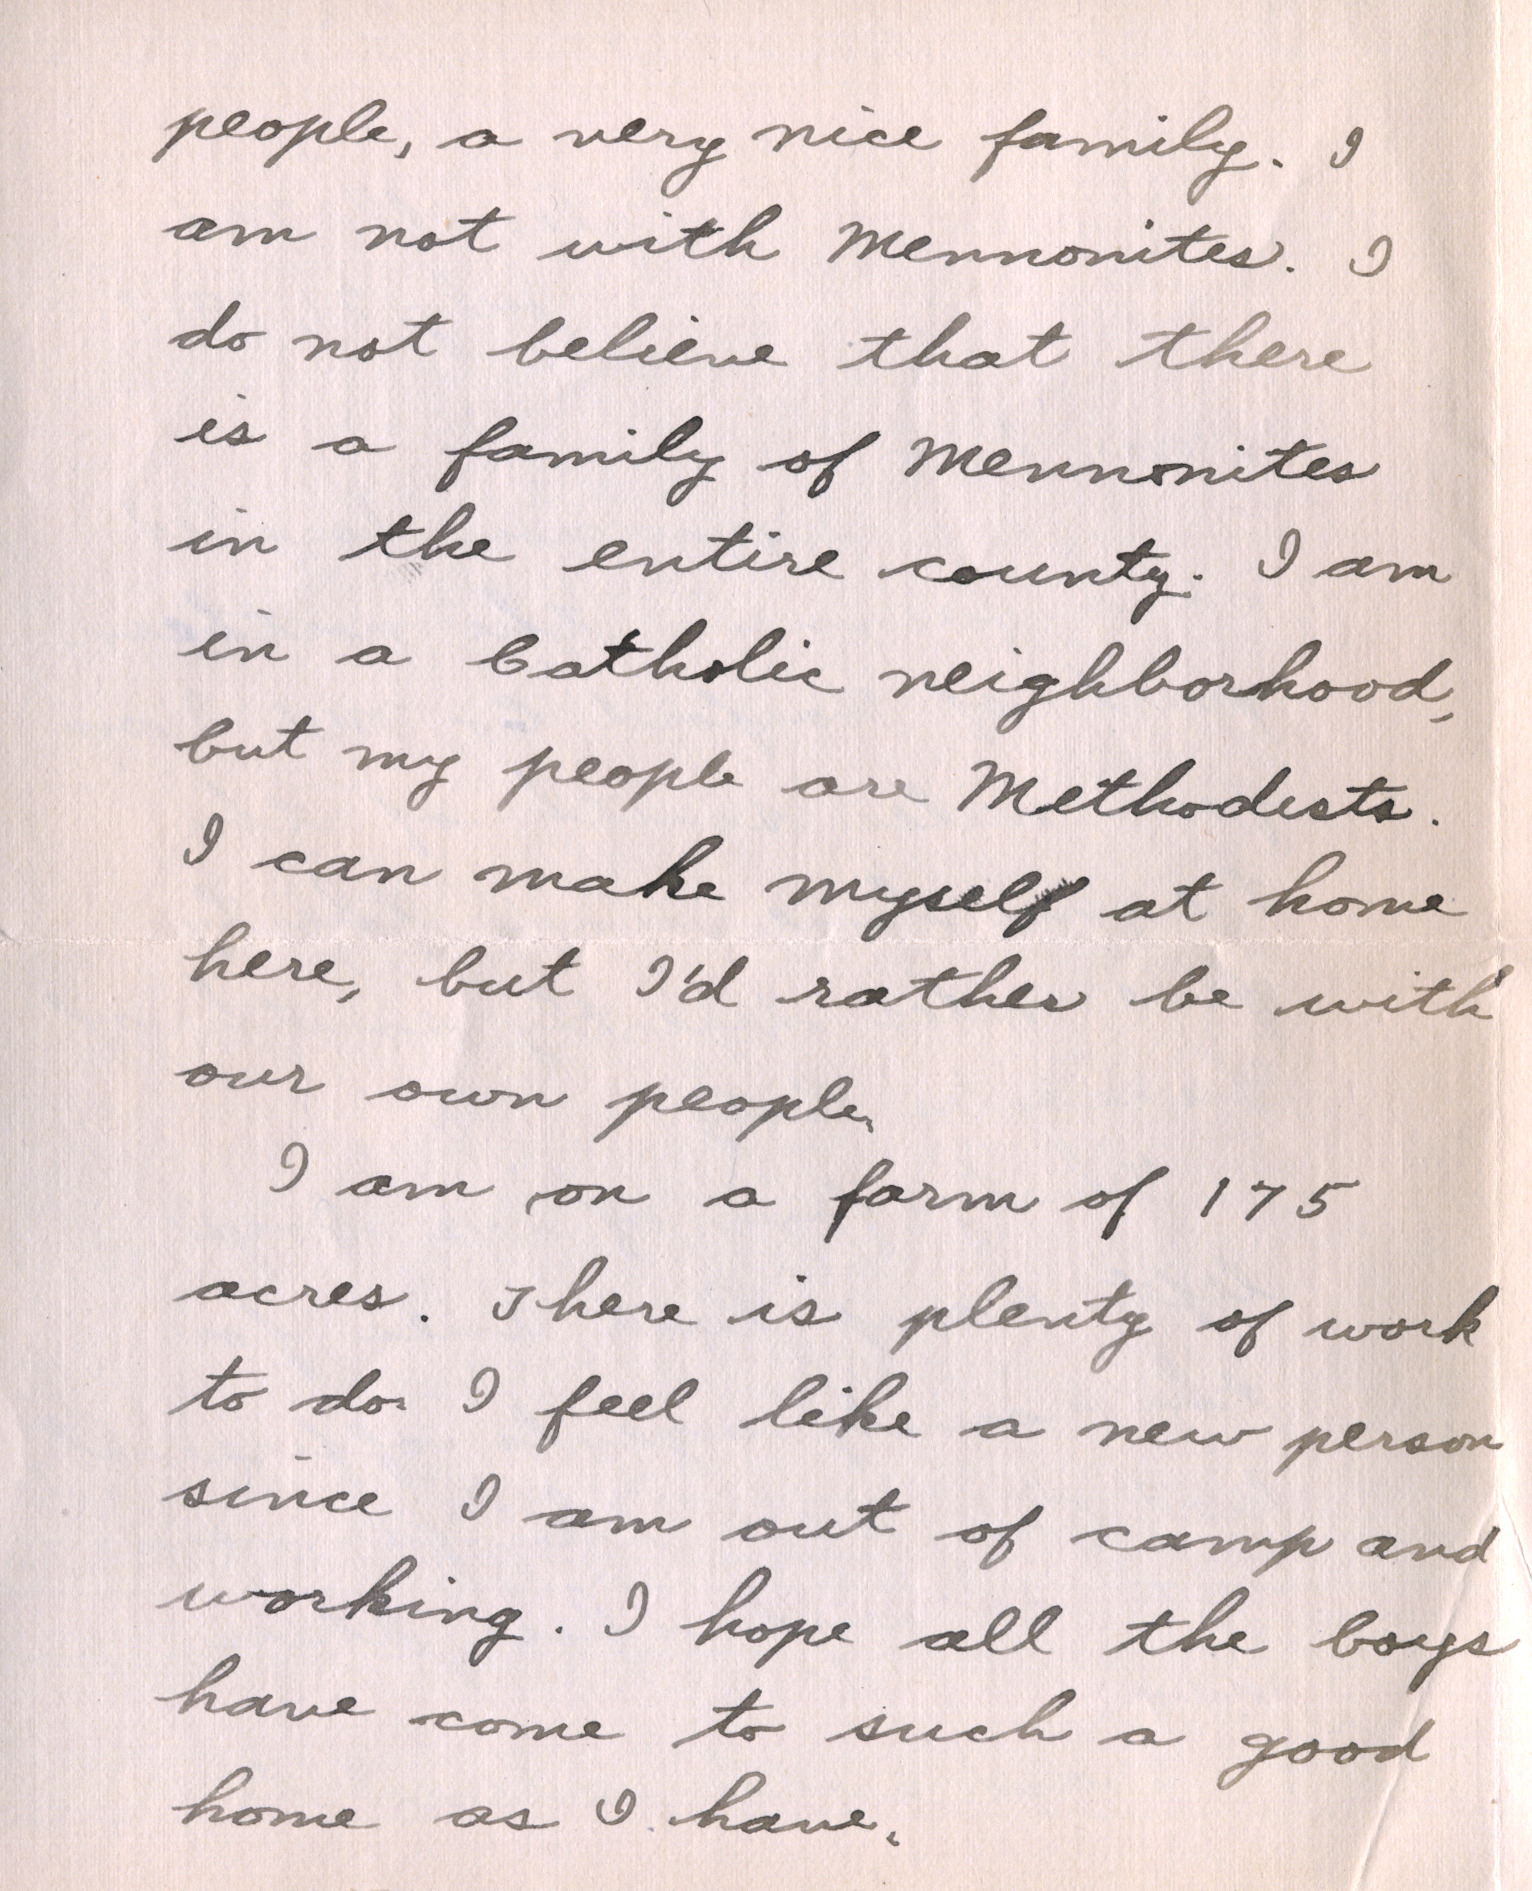 people, a very nice family. I
am not with Mennonites. I
do not believe that there
is a family of Mennonites
in the entire county. I am
in a Catholic neighborhood,
but my people are Methodists.
I can make myself at home
here, but I'd rather be with
our own people.
I am on a farm of 175
acres. There is plenty of work
to do. I feel like a new person
since I am out of camp and
working. I hope all the boys
have come to such a good
home as I have.